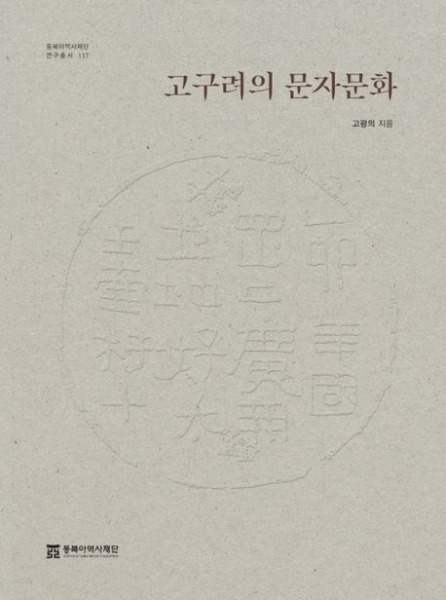 동북아역사재단
연구총서 137
고구려의 문자문화
고광의 지음
乙卯年國
罡上廣開
土地好太
王壺杅十
동북아역사재단